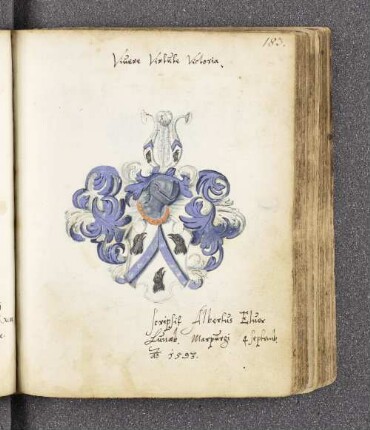 183.
Vivere Virtute Victoria.
scripsit Albertus Elver
Lunæb. Marpurgi 4 Septemb.
Aō 1593.